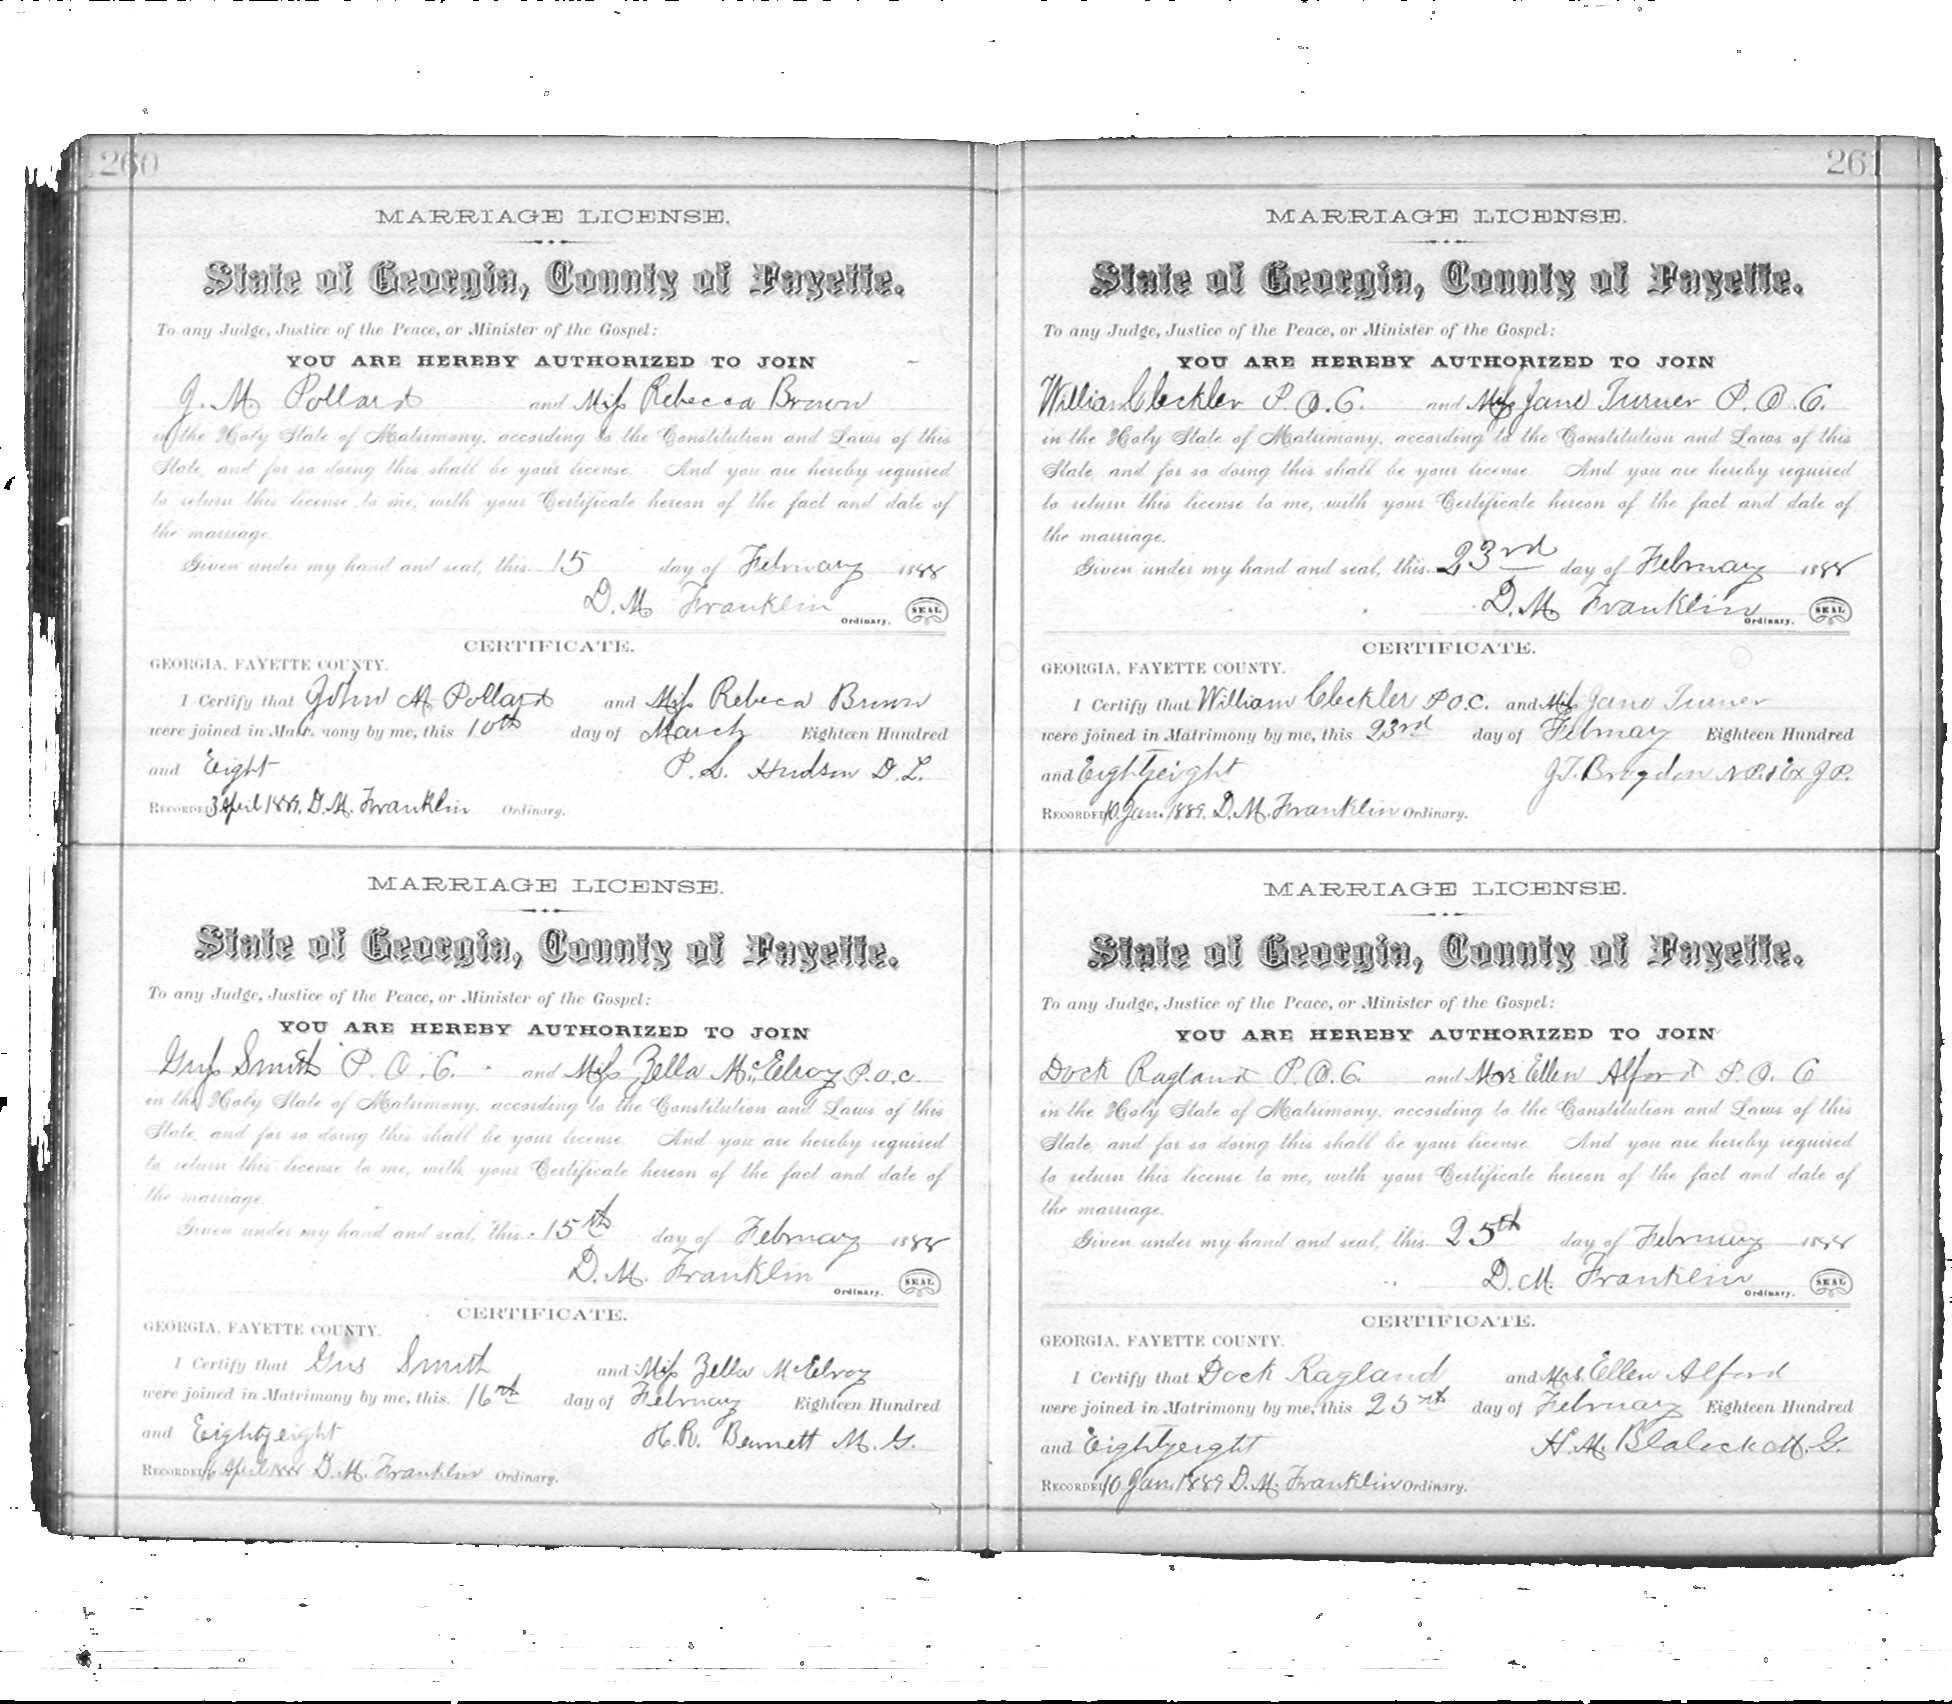 260
MARRIAGE LICENSE.
State of Georgia, County of Fayette.
To any Judge, Justice of the Peace, or Minister of the Gospel:
YOU ARE HEREBY AUTHORIZED TO JOIN
J. M Pollard and Miss Rebecca Brown
in the Holy State of Matrimony, according to the Constitution and Laws of this
State, and for so doing this shall be your license. And you are hereby required
to return this license to me, with your Certificate hereon of the fact and date of
the marriage.
Given under my hand and seal, this 15 day of February 1888
D. M Franklin
Ordinary. SEAL
CERTIFICATE.
GEORGIA, FAYETTE COUNTY.
I Certify that John M Pollard and Miss Rebeca Brown
were joined in Matrimony by me, this 10th day of March Eighteen Hundred
and Eight P. L. Hudson
RECORDED 3 April 1889. D. M. Franklin Ordinary.
MARRIAGE LICENSE.
State of Georgia, County of Fayette.
To any Judge, Justice of the Peace, or Minister of the Gospel:
YOU ARE HEREBY AUTHORIZED TO JOIN
Gus Smith P. O. C. and Miss Zella McElroy P.O.C.
in the Holy State of Matrimony, according to the Constitution and Laws of this
State, and for so doing this shall be your license. And you are hereby required
to return this license to me, with your Certificate hereon of the fact and date of
the marriage.
Given under my hand and seal, this 15th day of February 1888
D. M. Franklin
Ordinary. SEAL
CERTIFICATE.
GEORGIA, FAYETTE COUNTY.
I Certify that Gus Smith and Miss Zella McElroy
were joined in Matrimony by me, this 16th day of February Eighteen Hundred
and Eightyeight H. R. Bennett M. G.
RECORDED April 1888 D. M. Franklin Ordinary.
261
MARRIAGE LICENSE.
State of Georgia, County of Fayette.
To any Judge, Justice of the Peace, or Minister of the Gospel:
YOU ARE HEREBY AUTHORIZED TO JOIN
William Cleckler P. O. C. and Miss Jane Turner P. O. C.
in the Holy State of Matrimony, according to the Constitution and Laws of this
State, and for so doing this shall be your license. And you are hereby required
to return this license to me, with your Certificate hereon of the fact and date of
the marriage.
Given under my hand and seal, this 23rd day of February 1888
D. M Franklin
Ordinary. SEAL
CERTIFICATE.
GEORGIA, FAYETTE COUNTY.
I Certify that William Cleckler P.O.C. and Miss Jane Turner
were joined in Matrimony by me, this 23rd day of Februay Eighteen Hundred
and Eightyeight J. T. Brogdon N.P. & Ex J.P.
RECORDED 10. Jan. 1889. D. M. Franklin Ordinary.
MARRIAGE LICENSE.
State of Georgia, County of Fayette.
To any Judge, Justice of the Peace, or Minister of the Gospel:
YOU ARE HEREBY AUTHORIZED TO JOIN
Dock Ragland P. O. C. and Mrs Ellen Alford P. O. C
in the Holy State of Matrimony, according to the Constitution and Laws of this
State, and for so doing this shall be your license. And you are hereby required
to return this license to me, with your Certificate hereon of the fact and date of
the marriage.
Given under my hand and seal, this 25th day of February 1888
D. M. Franklin
Ordinary. SEAL
CERTIFICATE.
GEORGIA, FAYETTE COUNTY.
I Certify that Dock Ragland and Mrs. Ellen Alford
were joined in Matrimony by me, this 25th day of February Eighteen Hundred
and Eightyeight H. M. Blalock M. G.
RECORDED 10 Jan. 1889 D. M. Franklin Ordinary.